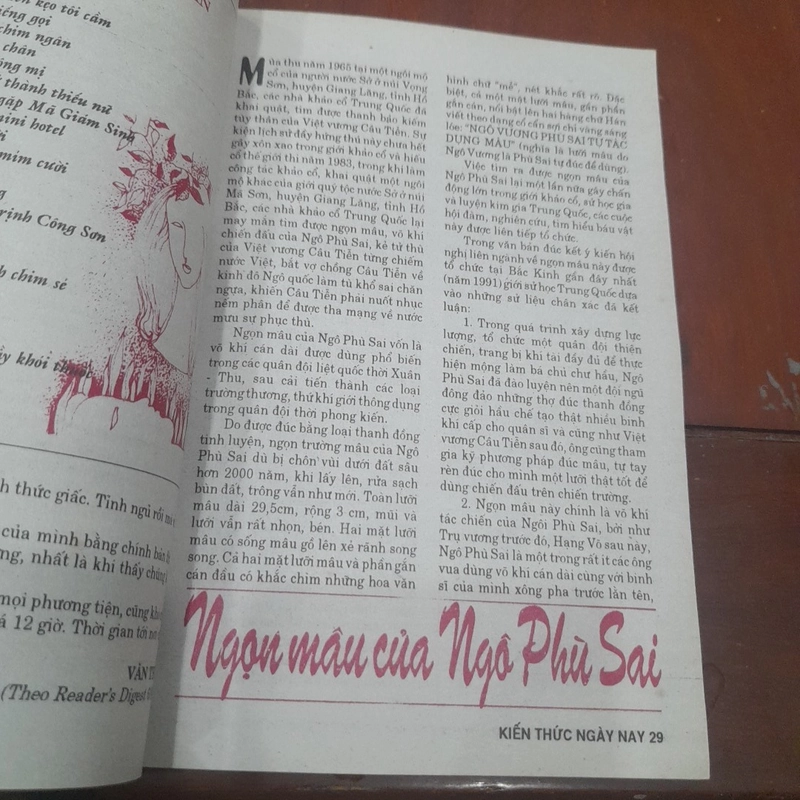 ẬN
n kẹo tôi cầm
iếng gọi
chim ngân
chân
óng mị
thành thiếu nữ
gặp Mã Giám Sinh
mini hotel
ời
mỉm cười
g
rịnh Công Sơn
h chim sẻ
ầy khói thuốc
h thức giấc. Tỉnh ngủ rồi mà
của mình bằng chính bản
ng, nhất là khi thấy chúng
mọi phương tiện, cũng
á 12 giờ. Thời gian tới nơi
VĂN
(Theo Reader's Digest
Mùa thu năm 1965 tại một ngôi mộ
cổ của người nước Sở ở núi Vọng
Sơn, huyện Giang Lăng, tỉnh Hồ
Bắc, các nhà khảo cổ Trung Quốc đã
khai quật, tìm được thanh bảo kiếm
tùy thân của Việt vương Câu Tiễn. Sự
kiện lịch sử đầy hứng thú này chưa hết
gây xôn xao trong giới khảo cổ và hiếu
cổ thế giới thì năm 1983, trong khi làm
công tác khảo cổ, khai quật một ngôi
mộ khác của giới quý tộc nước Sở ở núi
Mã Sơn, huyện Giang Lăng, tỉnh Hồ
Bắc, các nhà khảo cổ Trung Quốc lại
may mắn tìm được ngọn mâu, võ khí
chiến đấu của Ngô Phù Sai, kẻ tử thù
của Việt vương Câu Tiễn từng chiếm
nước Việt, bắt vợ chồng Câu Tiễn về
kinh đô Ngô quốc làm tù khổ sai chăn
ngựa, khiến Câu Tiễn phải nuốt nhục
nếm phân để được tha mạng về nước
mưu sự phục thù.
Ngọn mâu của Ngô Phù Sai vốn là
võ khí cán dài được dùng phổ biến
trong các quân đội liệt quốc thời Xuân
- Thu, sau cải tiến thành các loại
trường thương, thứ khí giới thông dụng
trong quân đội thời phong kiến.
Do được đúc bằng loại thanh đồng
tinh luyện, ngọn trường mâu của Ngô
Phù Sai dù bị chôn vùi dưới đất sâu
hơn 2000 năm, khi lấy lên, rửa sạch
bùn đất, trông vẫn như mới. Toàn lưỡi
mâu dài 29,5cm, rộng 3 cm, mũi và
lưỡi vẫn rất nhọn, bén. Hai mặt lưỡi
mâu có sống mâu gồ lên xẻ rãnh song
song. Cả hai mặt lưỡi mâu và phần gắn
cán đầu có khắc chìm những hoa văn
hình chữ "mễ", nét khắc rất rõ. Đặc
biệt, cả một mặt lưỡi mâu, gần phần
gắn cán, nổi bật lên hai hàng chữ Hán
viết theo dạng cổ cẩn sợi chỉ vàng sáng
lóe: "NGÔ VƯƠNG PHÙ SAI TỰ TÁC
DỤNG MÂU" (nghĩa là lưỡi mâu do
Ngô Vương là Phù Sai tự đúc để dùng).
Việc tìm ra được ngọn mâu của
Ngô Phù Sai lại một lần nữa gây chấn
động lớn trong giới khảo cổ, sử học gia
và luyện kim gia Trung Quốc, các cuộc
hội đàm, nghiên cứu, tìm hiểu báu vật
này được liên tiếp tổ chức.
Trong văn bản đúc kết ý kiến hội
nghị liên ngành về ngọn mâu này được
tổ chức tại Bắc Kinh gần đây nhất
(năm 1991) giới sử học Trung Quốc dựa
vào những sử liệu chân xác đã kết
luận:
1. Trong quá trình xây dựng lực
lượng, tổ chức một quân đội thiện
chiến, trang bị khí tài đầy đủ để thực
hiện mộng làm bá chủ chư hầu, Ngô
Phù Sai đã đào luyện nên một đội ngũ
đông đảo những thợ đúc thanh đồng
cực giỏi hầu chế tạo thật nhiều binh
khí cấp cho quân sĩ và cũng như Việt
vương Câu Tiễn sau đó, ông cũng tham
gia kỹ phương pháp đúc mâu, tự tay
rèn đúc cho mình một lưỡi thật tốt để
dùng chiến đấu trên chiến trường.
2. Ngọn mâu này chính là võ khí
tác chiến của Ngôi Phù Sai, bởi như
Trụ vương trước đó, Hạng Võ sau này,
Ngô Phù Sai là một trong rất ít các ông
vua dùng võ khí cán dài cùng với binh
sĩ của mình xông pha trước lằn tên,
Ngọn mâu của Ngô Phù Sai
KIẾN THỨC NGÀY NAY 29